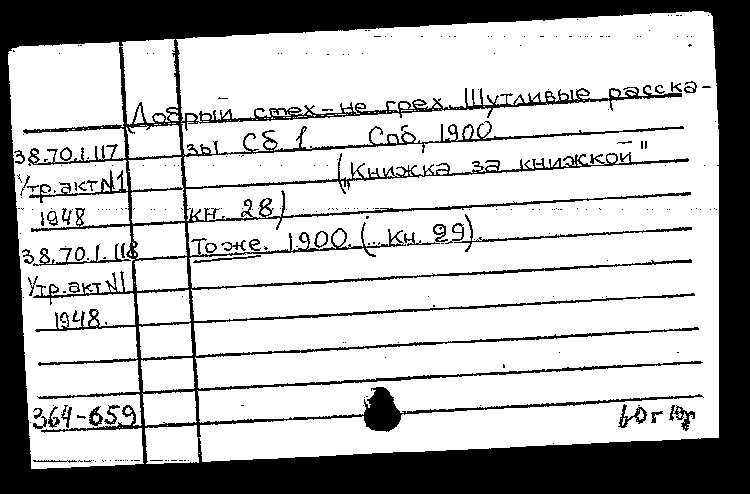 Добрый смех-не грех. Шутливые расска-
38.70.1.117 зы. Сб 1. Спб, 1900
Утр.акт N1 ("Книжка за книжкой"
1948 кн. 28)
38.70.1.118 То же. 1900. ( кн. 29).
Утр.акт N1
1948.
364-659